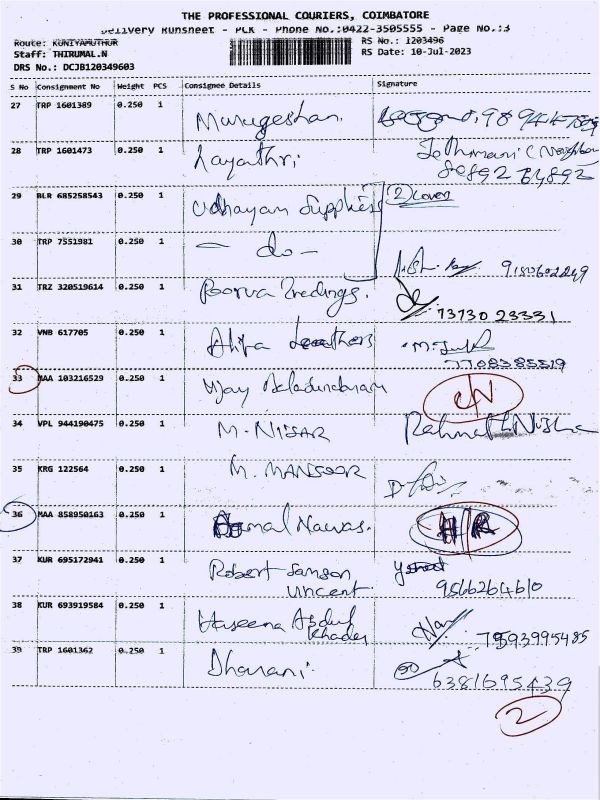 THE PROFESSIONAL COURIERS, COIMBATORE
Delivery Runsheet - PLK - Phone No.:0422-3505555 - Page No.:3
Route: KUNIYAMUTHUR RS No.: 1203496
Staff: THIRUMAL.N RS Date: 10-Jul-2023
DRS No.: DCJB120349603
S No Consignment No Weight PCS Consignee Details Signature
27 TRP 1601389 0.250 1 Murugeshan.
28 TRP 1601473 0.250 1 Gayathri Jethmani (Neighbour
29 BLR 685258543 0.250 1 Udhayam Supplies (2) Cover
30 TRP 7551981 0.250 1 - do -
31 TRZ 320519614 0.250 1 Poorva Tredings. 73730 23331
32 VNB 617705 0.250 1 7708385519
33 MAA 103216529 0.250 1 Vijay Baladundaram
34 VPL 944190475 0.250 1 M. NISSAR Rahmath Nisha
35 KRG 122564 0.250 1 M. MANSOOR
36 MAA 858950163 0.250 1 Nawas.
37 KUR 695172941 0.250 1 Robert Samson
Vincent 9566264610
38 KUR 693919584 0.250 1 Haseena Abdul
Khader 7593995485
39 TRP 1601362 0.250 1 Dharani. 6381695439
2